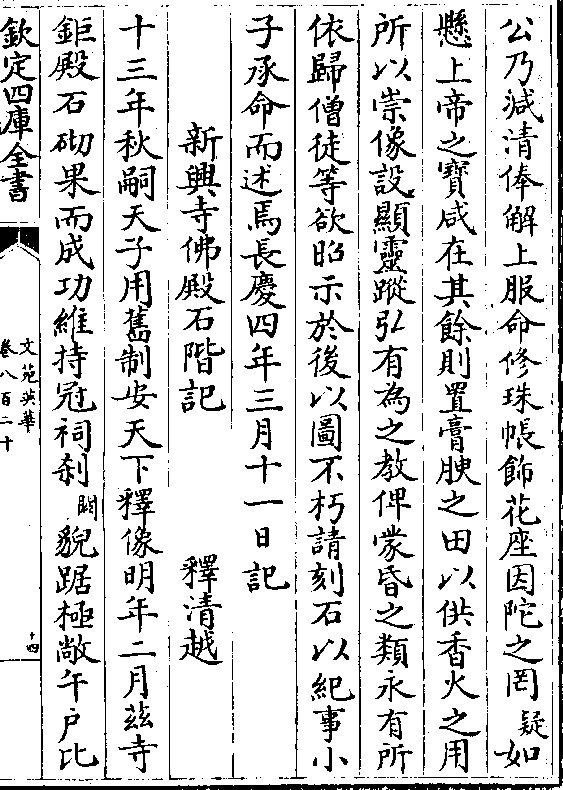 公乃減清俸解上服命修珠帳飾花座因陀之罔疑如
懸上帝之寶咸在其餘則置膏腴之田以供香火之用
所以崇像設顯靈蹤弘有為之教俾蒙昏之類永有所
依歸僧徒等欲昭示於後以圖不朽請刻石以紀事小
子承命而述焉長慶四年三月十一日記
新興寺佛殿石階記 釋清越
十三年秋嗣天子用舊制安天下釋像明年二月茲寺
鉅殿石砌果而成功維持冠祠刹闕貌踞極敞午户比
欽定四庫全書
文苑英華
卷八百二十
十四